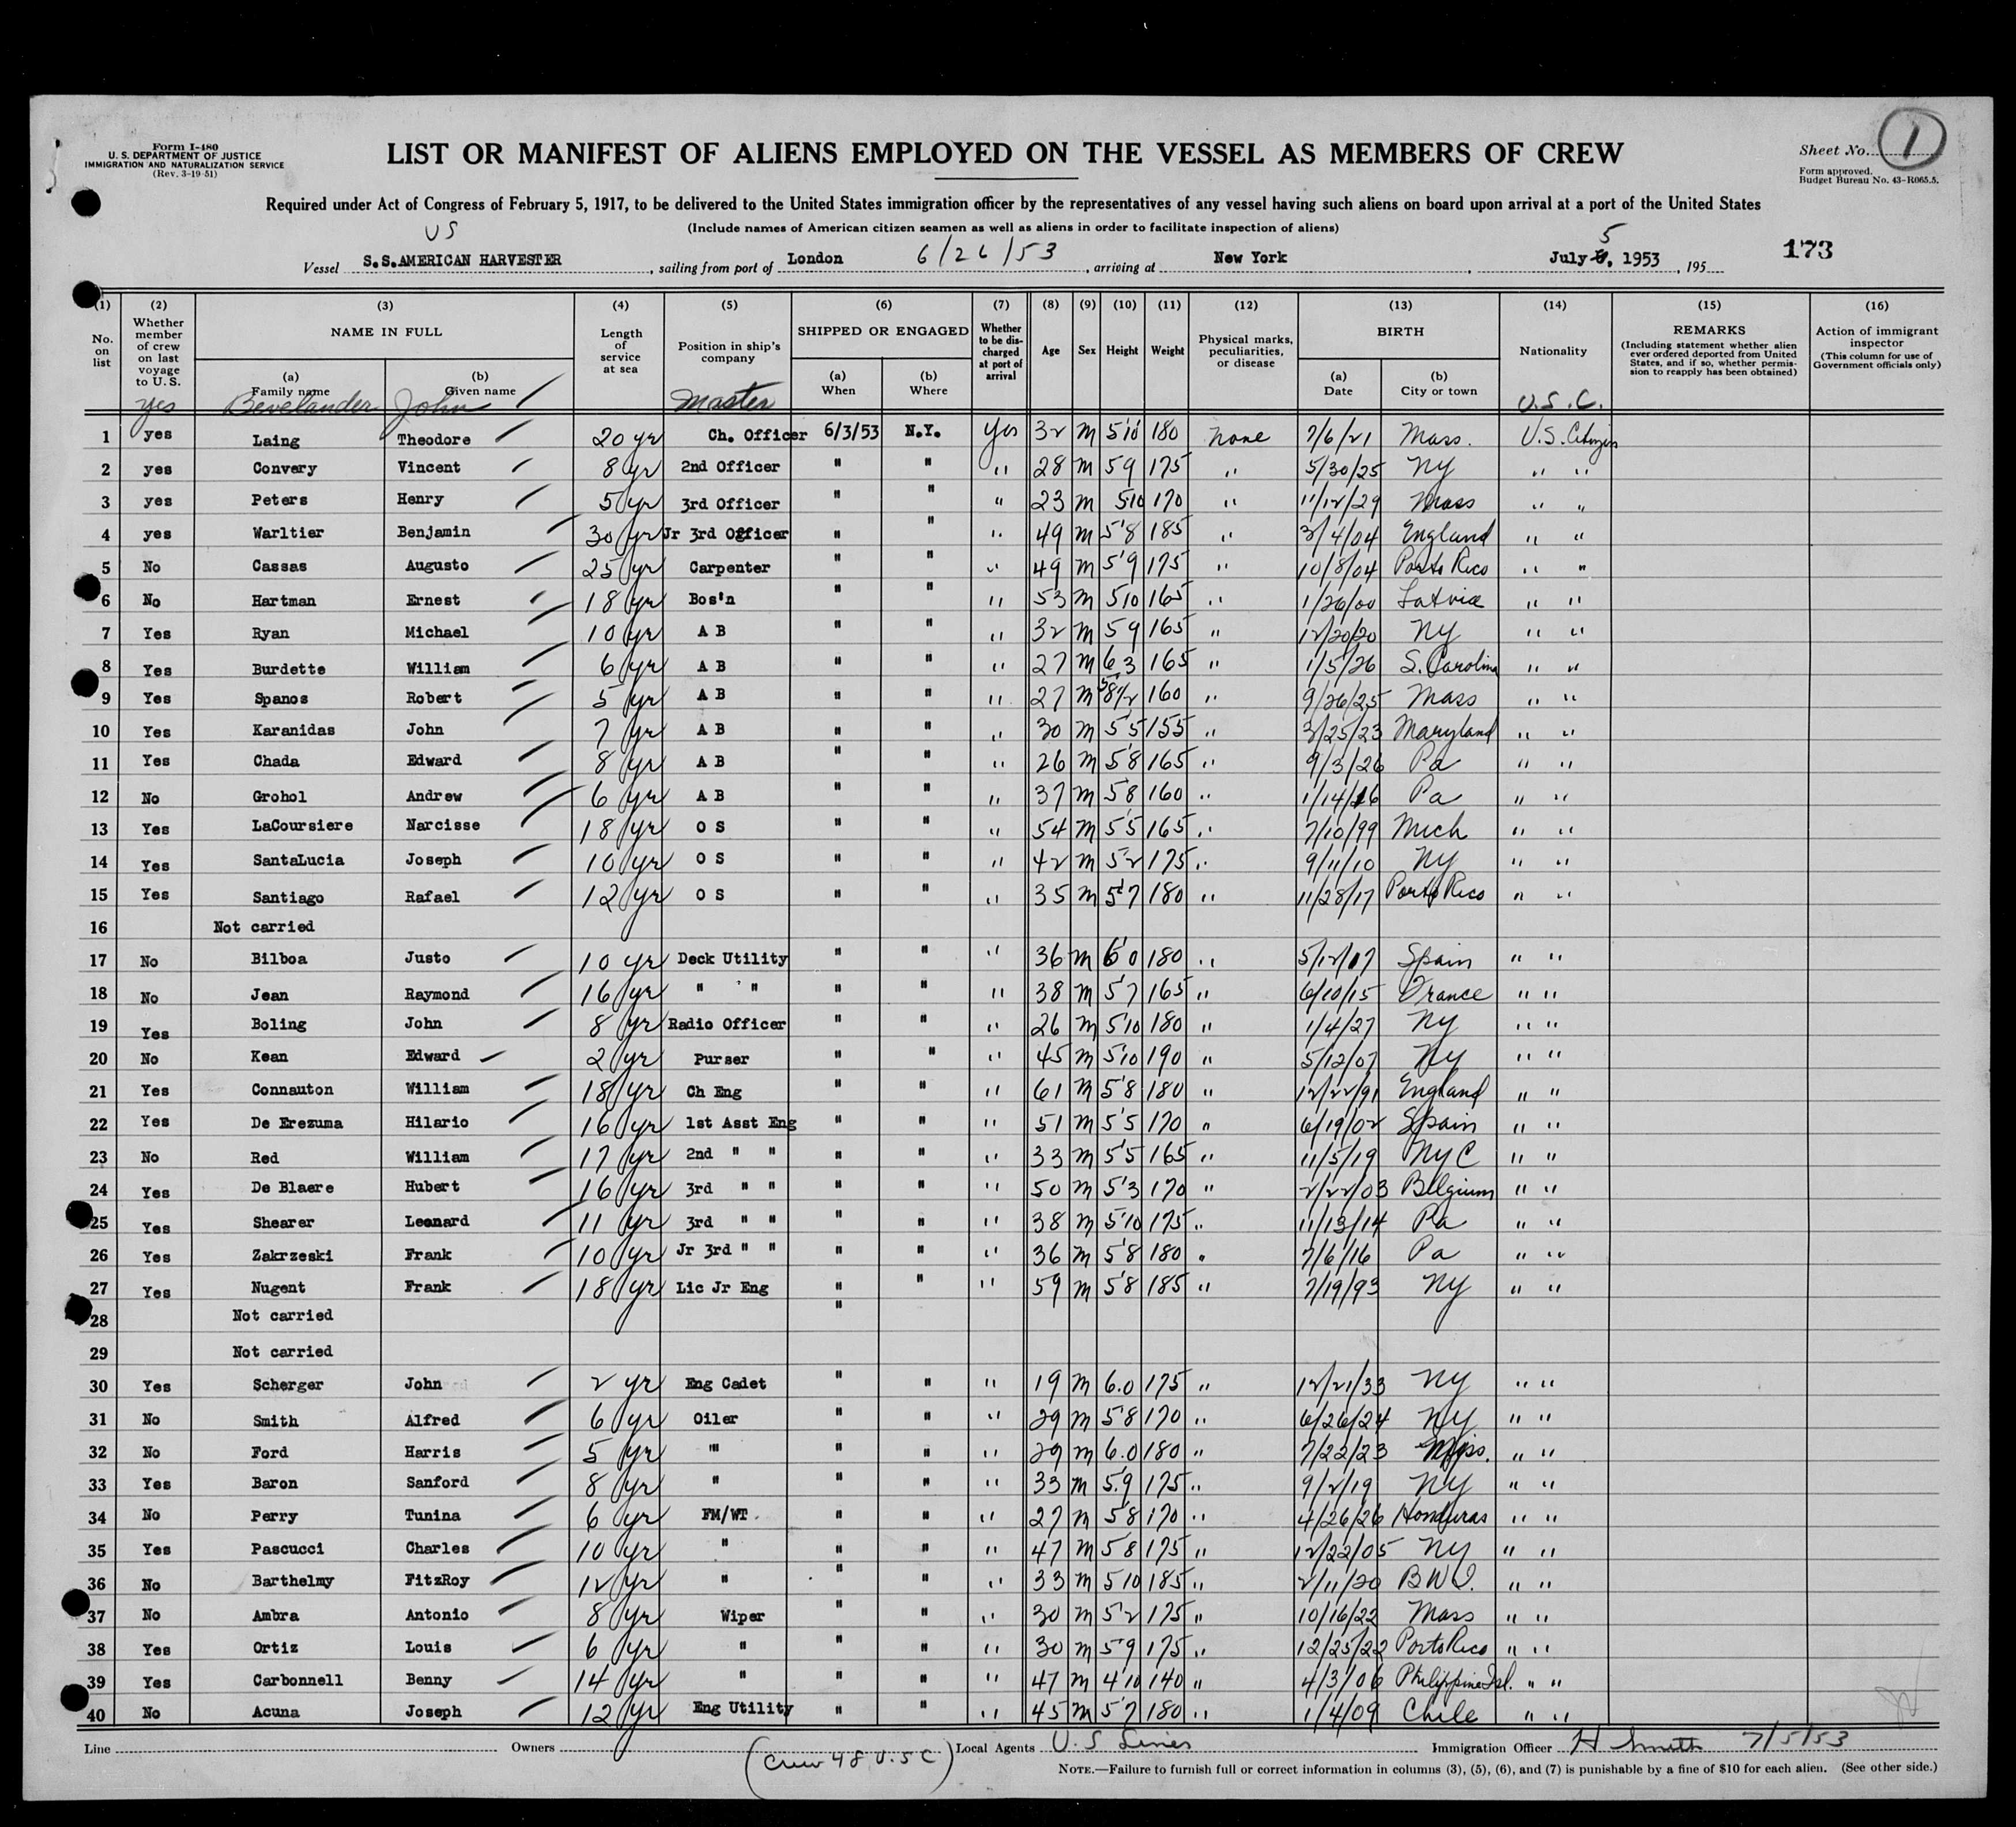 Form I-480
U. S. DEPARTMENT OF JUSTICE
IMMIGRATION AND NATURALIZATION SERVICE
(Rev. 3-19-51)
LIST OR MANIFEST OF ALIENS EMPLOYED ON THE VESSEL AS MEMBERS OF CREW
Sheet No. 1
Form approved.
Budget Bureau No. 43-R065.5.
Required under Act of Congress of February 5, 1917, to be delivered to the United States immigration officer by the representatives of any vessel having such aliens on board upon arrival at a port of the United States
(Include names of American citizen seamen as well as aliens in order to facilitate inspection of aliens)
US 5
Vessel S.S.AMERICAN HARVESTER, sailing from port of London 6/26/53, arriving at New York, July , 1953, 195 173
(1) (2) (3) (4) (5) (6) (7) (8) (9) (10) (11) (12) (13) (14) (15) (16)
No. on list Whether member of crew on last voyage to U. S. NAME IN FULL Length of service at sea Position in ship's company SHIPPED OR ENGAGED Whether to be discharged at port of arrival Age Sex Height Weight Physical marks, peculiarities, or disease BIRTH Nationality REMARKS (Including statement whether alien ever ordered deported from United States, and if so, whether permission to reapply has been obtained) Action of immigrant inspector (This column for use of Government officials only)
(a) Family name (b) Given name (a) When (b) Where (a) Date (b) City or town
yes Bevelander John Master U.S.C.
1 yes Laing Theodore 20 yr Ch. Officer 6/3/53 N.Y. Yes 32 M 5'10 180 None 7/6/21 Mass. U.S. Citizen
2 yes Convery Vincent 8 yr 2nd Officer " " " 28 M 59 175 " 5/30/25 NY " "
3 yes Peters Henry 5 yr 3rd Officer " " " 23 M 510 170 " 11/12/29 Mass " "
4 yes Warltier Benjamin 30 yr Jr 3rd Officer " " " 49 M 5'8 185 " 3/4/04 England " "
5 No Cassas Augusto 25 yr Carpenter " " " 49 M 5'9 175 " 10/8/04 Porto Rico " "
6 No Hartman Ernest 18 yr Bos'n " " " 53 M 510 165 " 1/26/00 Latvia " "
7 Yes Ryan Michael 10 yr A B " " " 32 M 59 165 " 12/20/20 NY " "
8 Yes Burdette William 6 yr A B " " " 27 M 63 165 " 1/5/26 S. Carolina " "
9 Yes Spanos Robert 5 yr A B " " " 27 M 5'8 1/2 160 " 9/26/25 Mass " "
10 Yes Karanidas John 7 yr A B " " " 30 M 5'5 155 " 3/25/23 Maryland " "
11 Yes Chada Edward 8 yr A B " " " 26 M 5'8 165 " 9/3/26 Pa " "
12 No Grohol Andrew 6 yr A B " " " 37 M 58 160 " 1/14/16 Pa " "
13 Yes LaCoursiere Narcisse 18 yr O S " " " 54 M 5'5 165 " 7/10/99 Mich " "
14 Yes SantaLucia Joseph 10 yr O S " " " 42 M 5'2 175 " 9/11/10 NY " "
15 Yes Santiago Rafael 12 yr O S " " " 35 M 5'7 180 " 11/28/17 Porto Rico " "
16 Not carried
17 No Bilboa Justo 10 yr Deck Utility " " " 36 M 6'0 180 " 5/12/17 Spain " "
18 No Jean Raymond 16 yr " " " " " 38 M 5'7 165 " 6/10/15 France " "
19 Yes Boling John 8 yr Radio Officer " " " 26 M 5'10 180 " 1/4/27 NY " "
20 No Kean Edward 2 yr Purser " " " 45 M 5'10 190 " 5/12/07 NY " "
21 Yes Connauton William 18 yr Ch Eng " " " 61 M 5'8 180 " 12/22/91 England " "
22 Yes De Erezuma Hilario 16 yr 1st Asst Eng " " " 51 M 5'5 170 " 6/19/02 Spain " "
23 No Red William 17 yr 2nd " " " " " 33 M 5'5 165 " 11/5/19 NYC " "
24 Yes De Blaere Hubert 16 yr 3rd " " " " " 50 M 5'3 170 " 2/22/03 Belgium " "
25 Yes Shearer Leonard 11 yr 3rd " " " " " 38 M 5'10 175 " 11/13/14 Pa " "
26 Yes Zakrzeski Frank 10 yr Jr 3rd " " " " " 36 M 5'8 180 " 7/6/16 Pa " "
27 Yes Nugent Frank 18 yr Lic Jr Eng " " " 59 M 5'8 185 " 7/19/93 NY " "
28 Not carried "
29 Not carried
30 Yes Scherger John 2 yr Eng Cadet " " " 19 M 6.0 175 " 12/21/33 NY " "
31 No Smith Alfred 6 yr Oiler " " " 29 M 5'8 170 " 6/26/24 NY " "
32 No Ford Harris 5 yr " " " " 29 M 6.0 180 " 7/22/23 Miss. " "
33 Yes Baron Sanford 8 yr " " " " 33 M 5.9 175 " 9/2/19 NY " "
34 No Perry Tunina 6 yr FM/WT. " " " 27 M 5'8 170 " 4/26/26 Honduras " "
35 Yes Pascucci Charles 10 yr " " " " 47 M 58 175 " 12/22/05 NY " "
36 No Barthelmy FitzRoy 12 yr " " " " 33 M 510 185 " 2/11/20 BWI. " "
37 No Ambra Antonio 8 yr Wiper " " " 30 M 5'2 175 " 10/16/22 Mass " "
38 Yes Ortiz Louis 6 yr " " " " 30 M 5'9 175 " 12/25/22 Porto Rico " "
39 Yes Carbonnell Benny 14 yr " " " " 47 M 4'10 140 " 4/3/06 Philippine Isl. " "
40 No Acuna Joseph 12 yr Eng Utility " " " 45 M 5'7 180 " 1/4/09 Chile " "
Line Owners (Crew 48 U.S C) Local Agents U.S Lines Immigration Officer H Smith 7/5/53
NOTE.—Failure to furnish full or correct information in columns (3), (5), (6), and (7) is punishable by a fine of $10 for each alien. (See other side.)